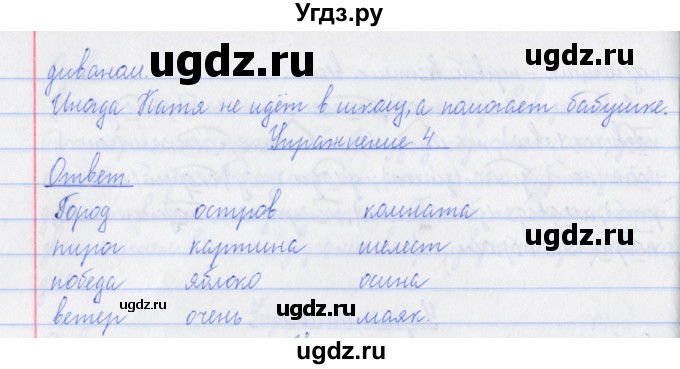 Угдз.ру
диваном.
Иногда Катя не идёт в школу, а помогает бабушке.
Упражнение 4
Ответ.
Город остров комната
пирог картина шелест
победа яблоко осина
ветер очень маяк.
ugdz.ru ugdz.ru
ugdz.ru
ugdz.ru ugdz.ru
ugdz.ru ugdz.ru
ugdz.ru